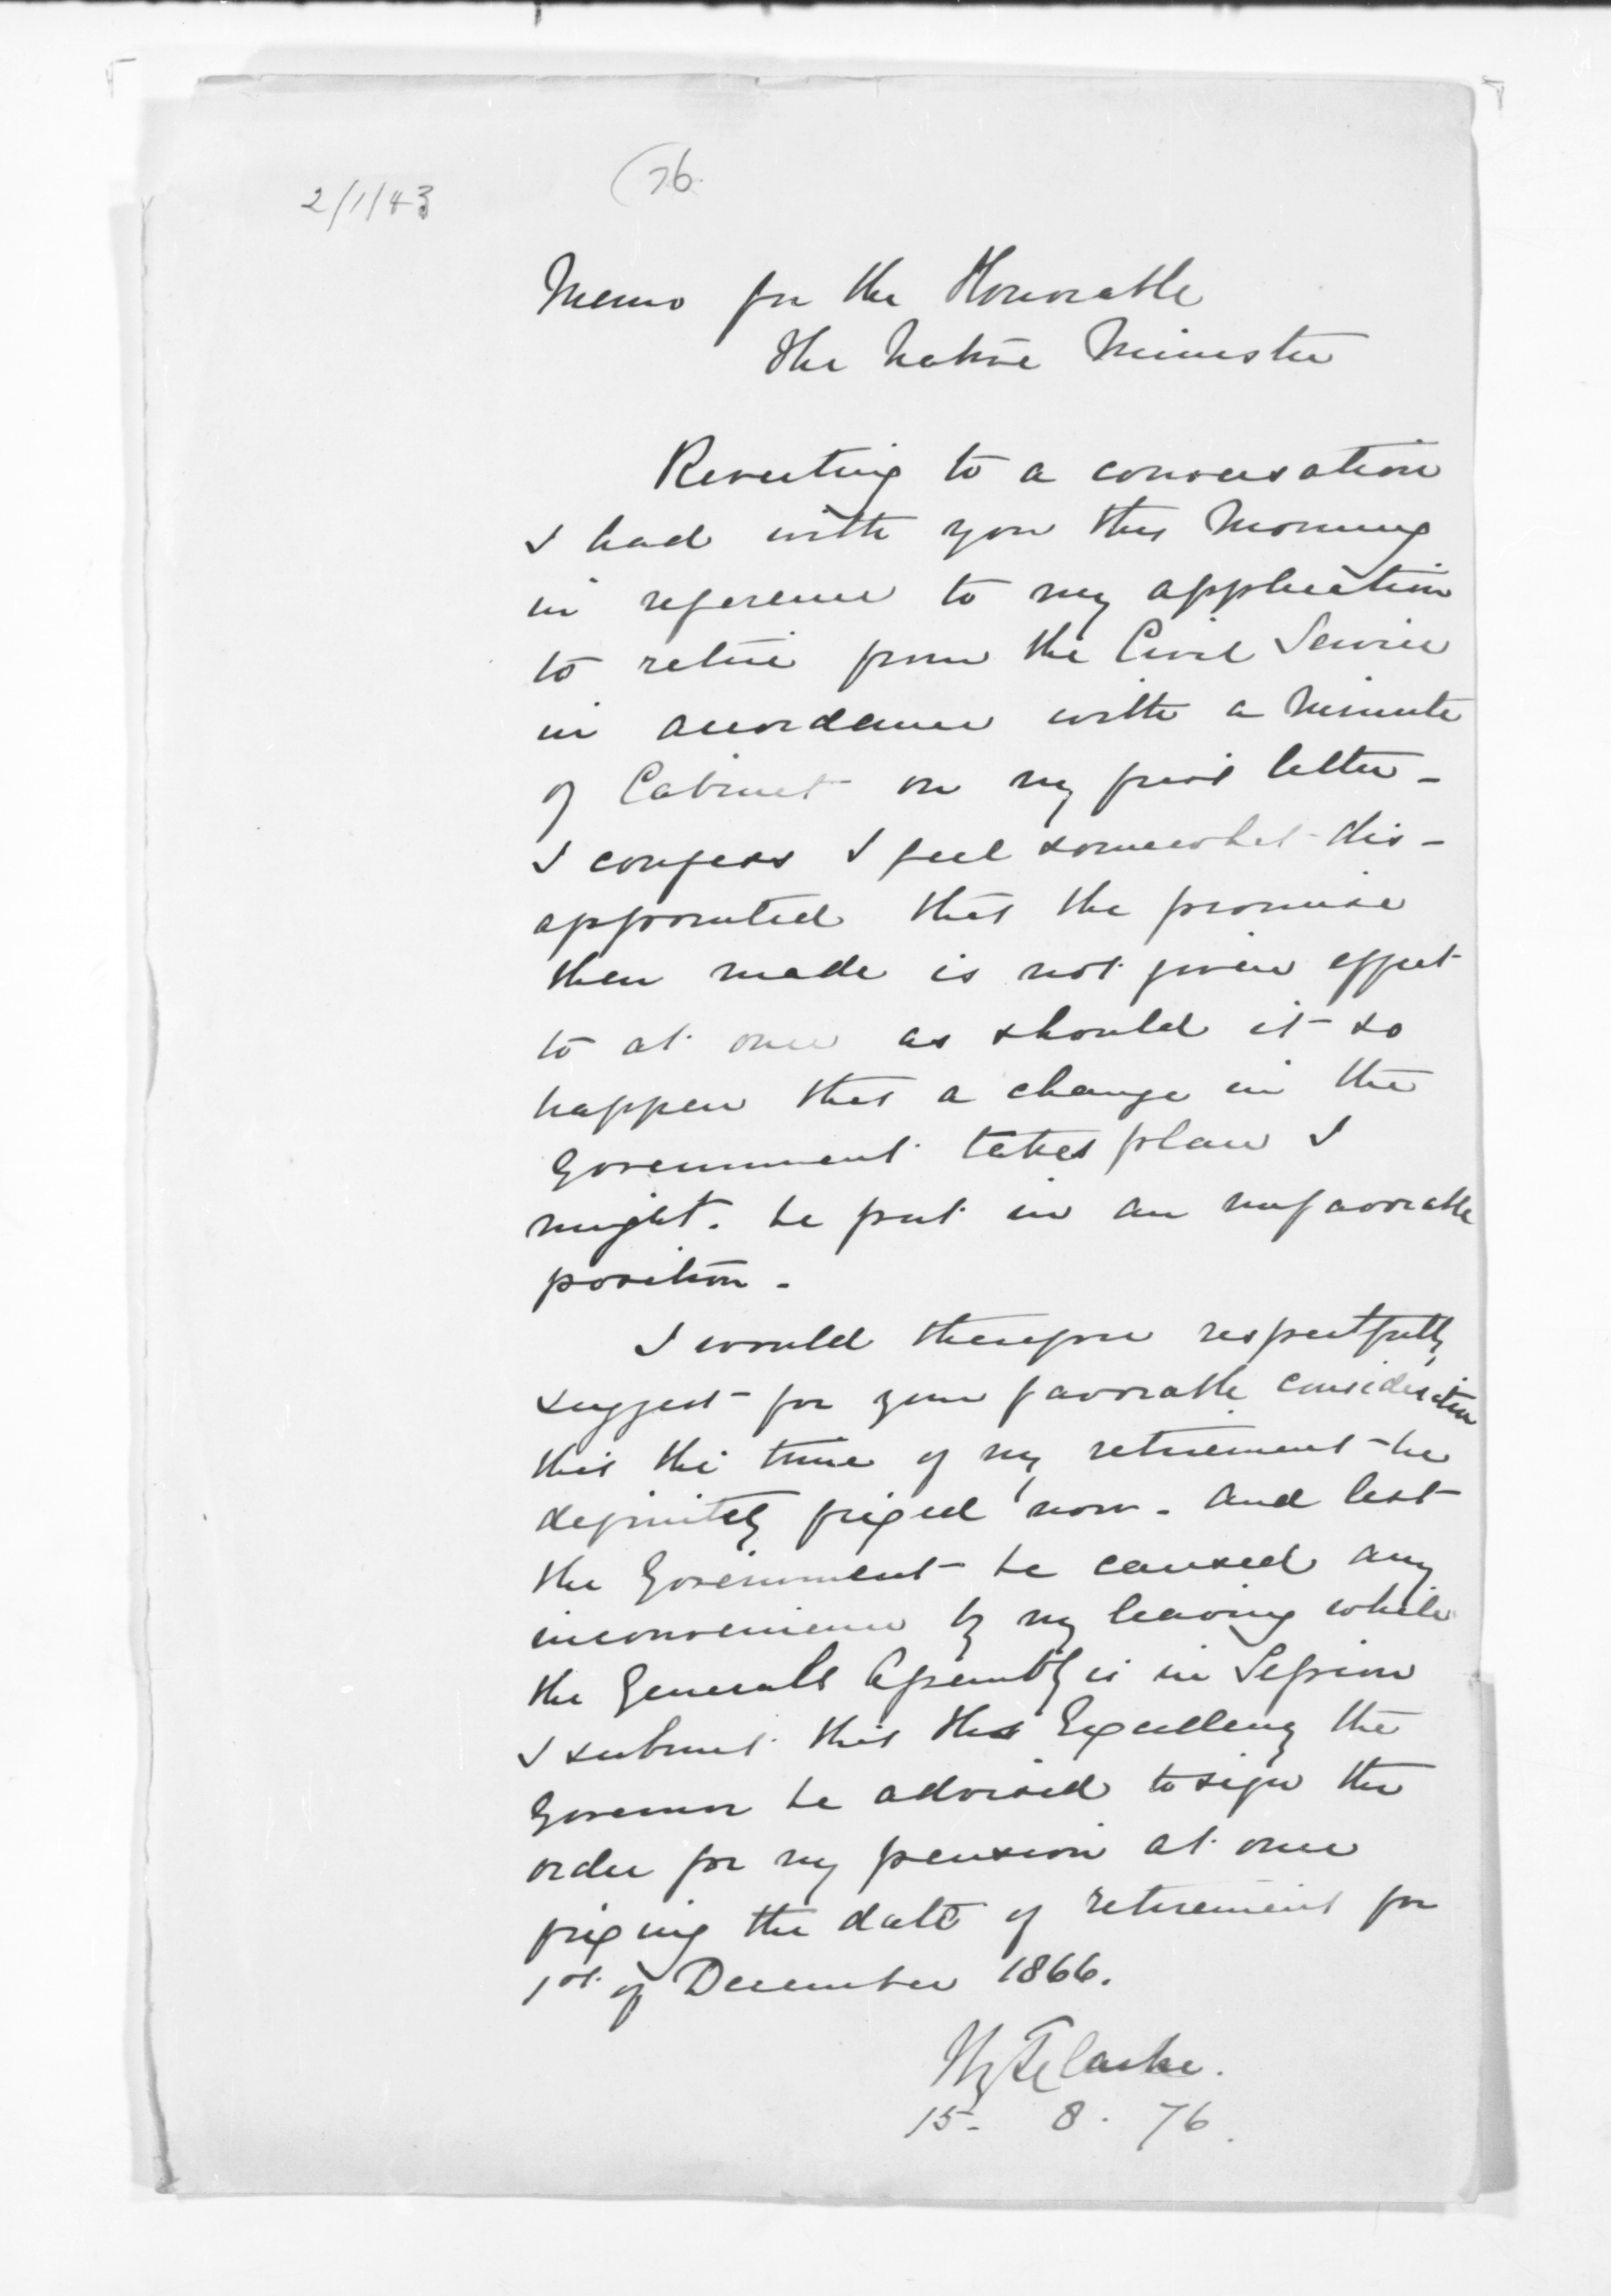 2/1/43
(76.
Memo for the Honorable
the Native Minister
Reverting to a conversation
I had with you this Morning
in reference to my application
to retire from the Civil Service
in accordance with a Minute
of Cabinet on my first letter -
I confess I feel somewhat dis-
appointed that the promise
then made is not given effect
to at once as should it so
happen that a change in the
Government takes place I
might be put in an unfavorable
position -
I would therefore respectfully
suggest for your favorable consideration
that the time of my retirement be
definitely fixed now - and lest
the Government be caused any
inconvenience by my leaving while
the General Assembly is in Session
I submit that His Excellency the
Governor be advised to sign the
order for my pension at once
fixing the date of retirement for
1st of December 1866.
HyTClarke.
15 - 8 . 76.